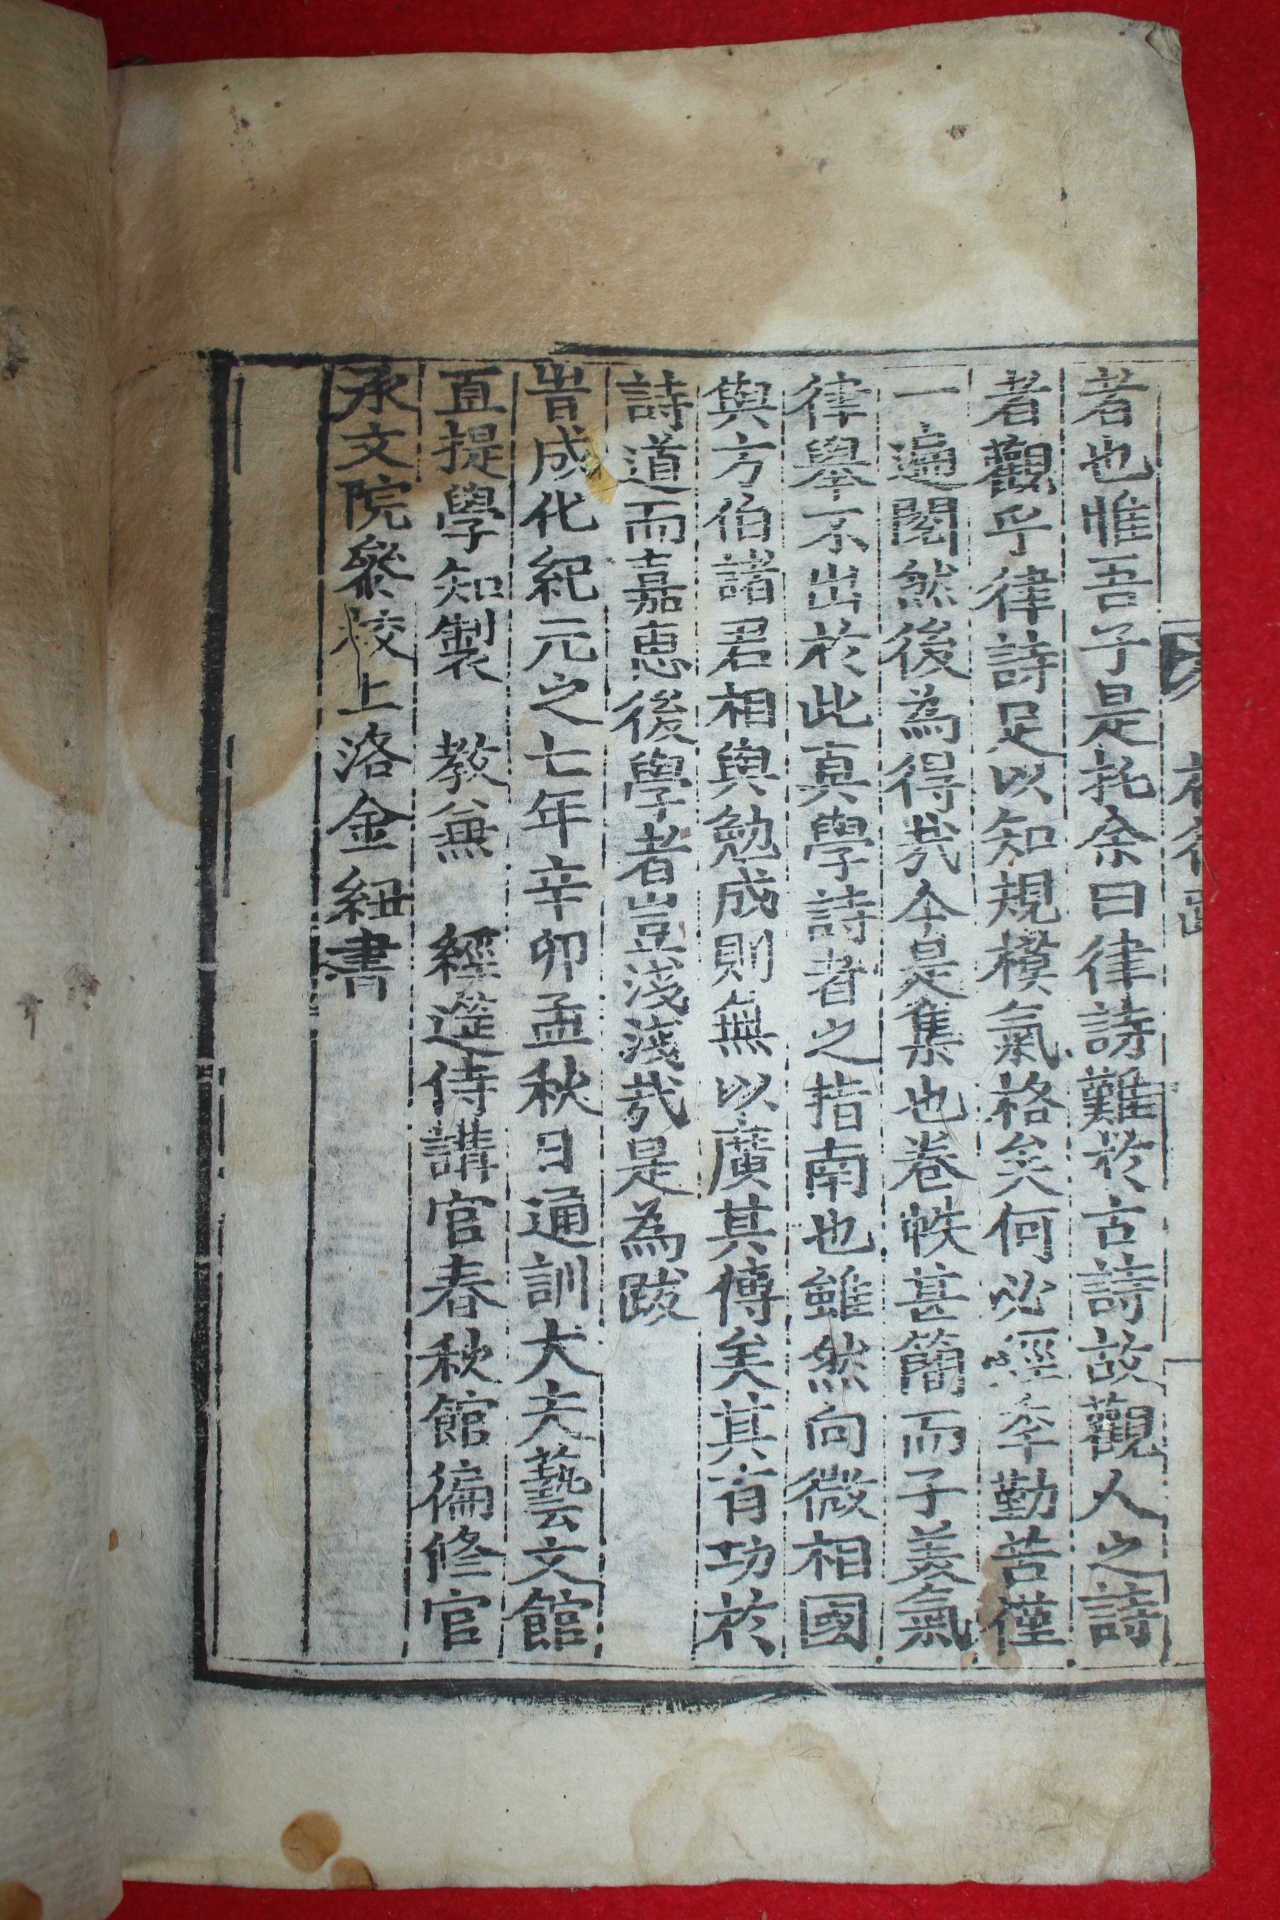 者也惟吾子是托余曰律詩難於古詩故觀人之詩
者觀乎律詩足以知規模氣格矣何必經年勤苦僅
一遍閱然後為得哉今是集也卷帙甚簡而子美氣
律舉不出於此真學詩者之指南也雖然向微相國
與方伯諸君相與勉成則無以廣其傳矣其有功於
詩道而嘉惠後學者豈淺淺哉是為跋
旹成化紀元之七年辛卯孟秋日通訓大夫藝文館
直提學知製 教兼 經筵侍講官春秋館編修官
承文院參校上洛金紐書